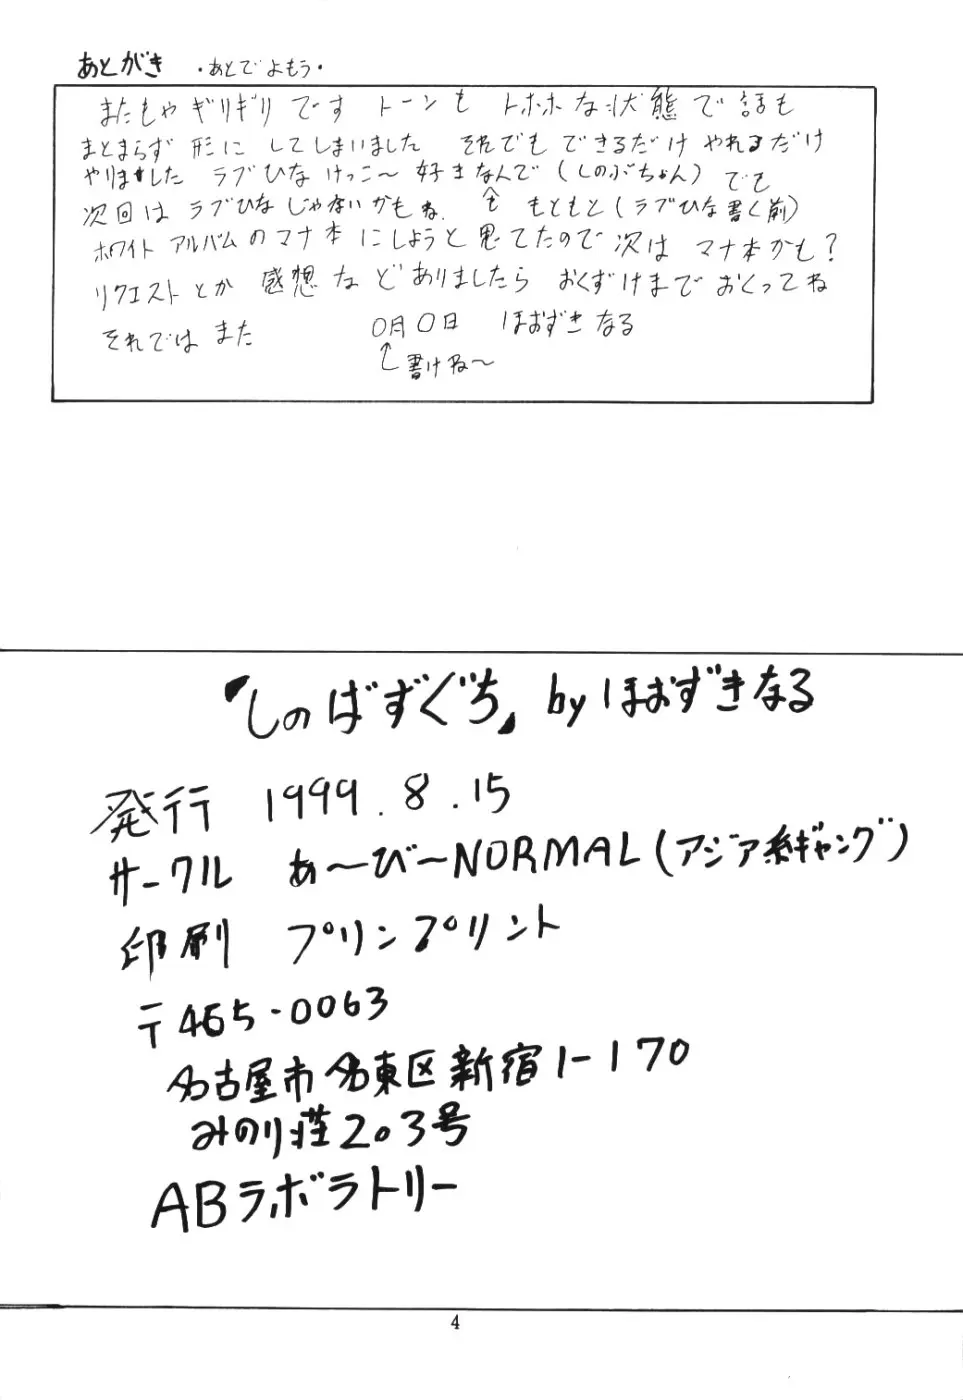 あとがき ・あとでよもう・
またもやギリギリです トーンも トホホな状態で話も
まとまらず 形に してしまいました それでも できるだけ やれるだけ
やりました ラブひな けっこ〜 好きなんで（しのぶちゃん）でも
次回は ラブひなじゃないかもね。 もともと（ラブひな書く前）
ホワイトアルバムのマナ本にしようと思てたので次は マナ本かも？
リクエストとか 感想などありましたら おくずけまでおくってね
それでは また 〇月〇日 ほおずきなる
書けね〜
『しのばずぐち』 by ほおずきなる
発行 1999.8.15
サークル あ〜び〜NORMAL（アジア系ギャング）
印刷 プリンプリント
〒465-0063
名古屋市名東区新宿1-170
みのり荘203号
ABラボラトリー
4